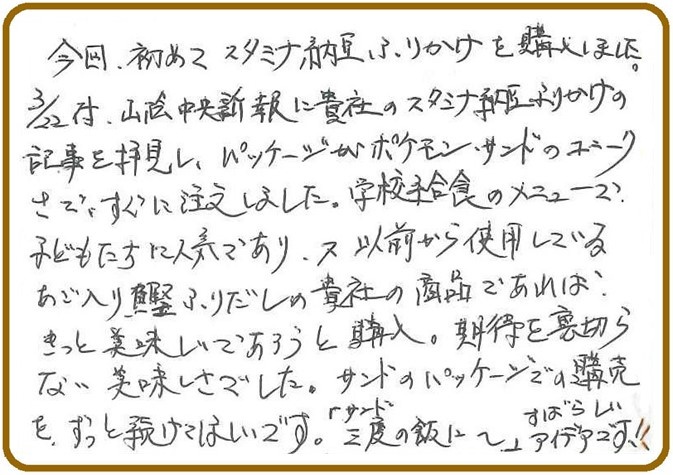 今回、初めて スタミナ納豆ふりかけを購入しました。
3/22付、山陰中央新報に貴社のスタミナ納豆ふりかけの
記事を拝見し、パッケージがポケモン・サンドのユニーク
さで、すぐに注文しました。学校給食のメニューで、
子どもたちに人気であり、又 以前から使用している
あご入り鰹ふりだしの貴社の商品であれば、
きっと美味しいであろうと購入。期待を裏切ら
ない 美味しさでした。サンドのパッケージでの購売
を、ずっと続けてほしいです。「サンド
三度の飯に〜」 すばらしい
アイデアです!!